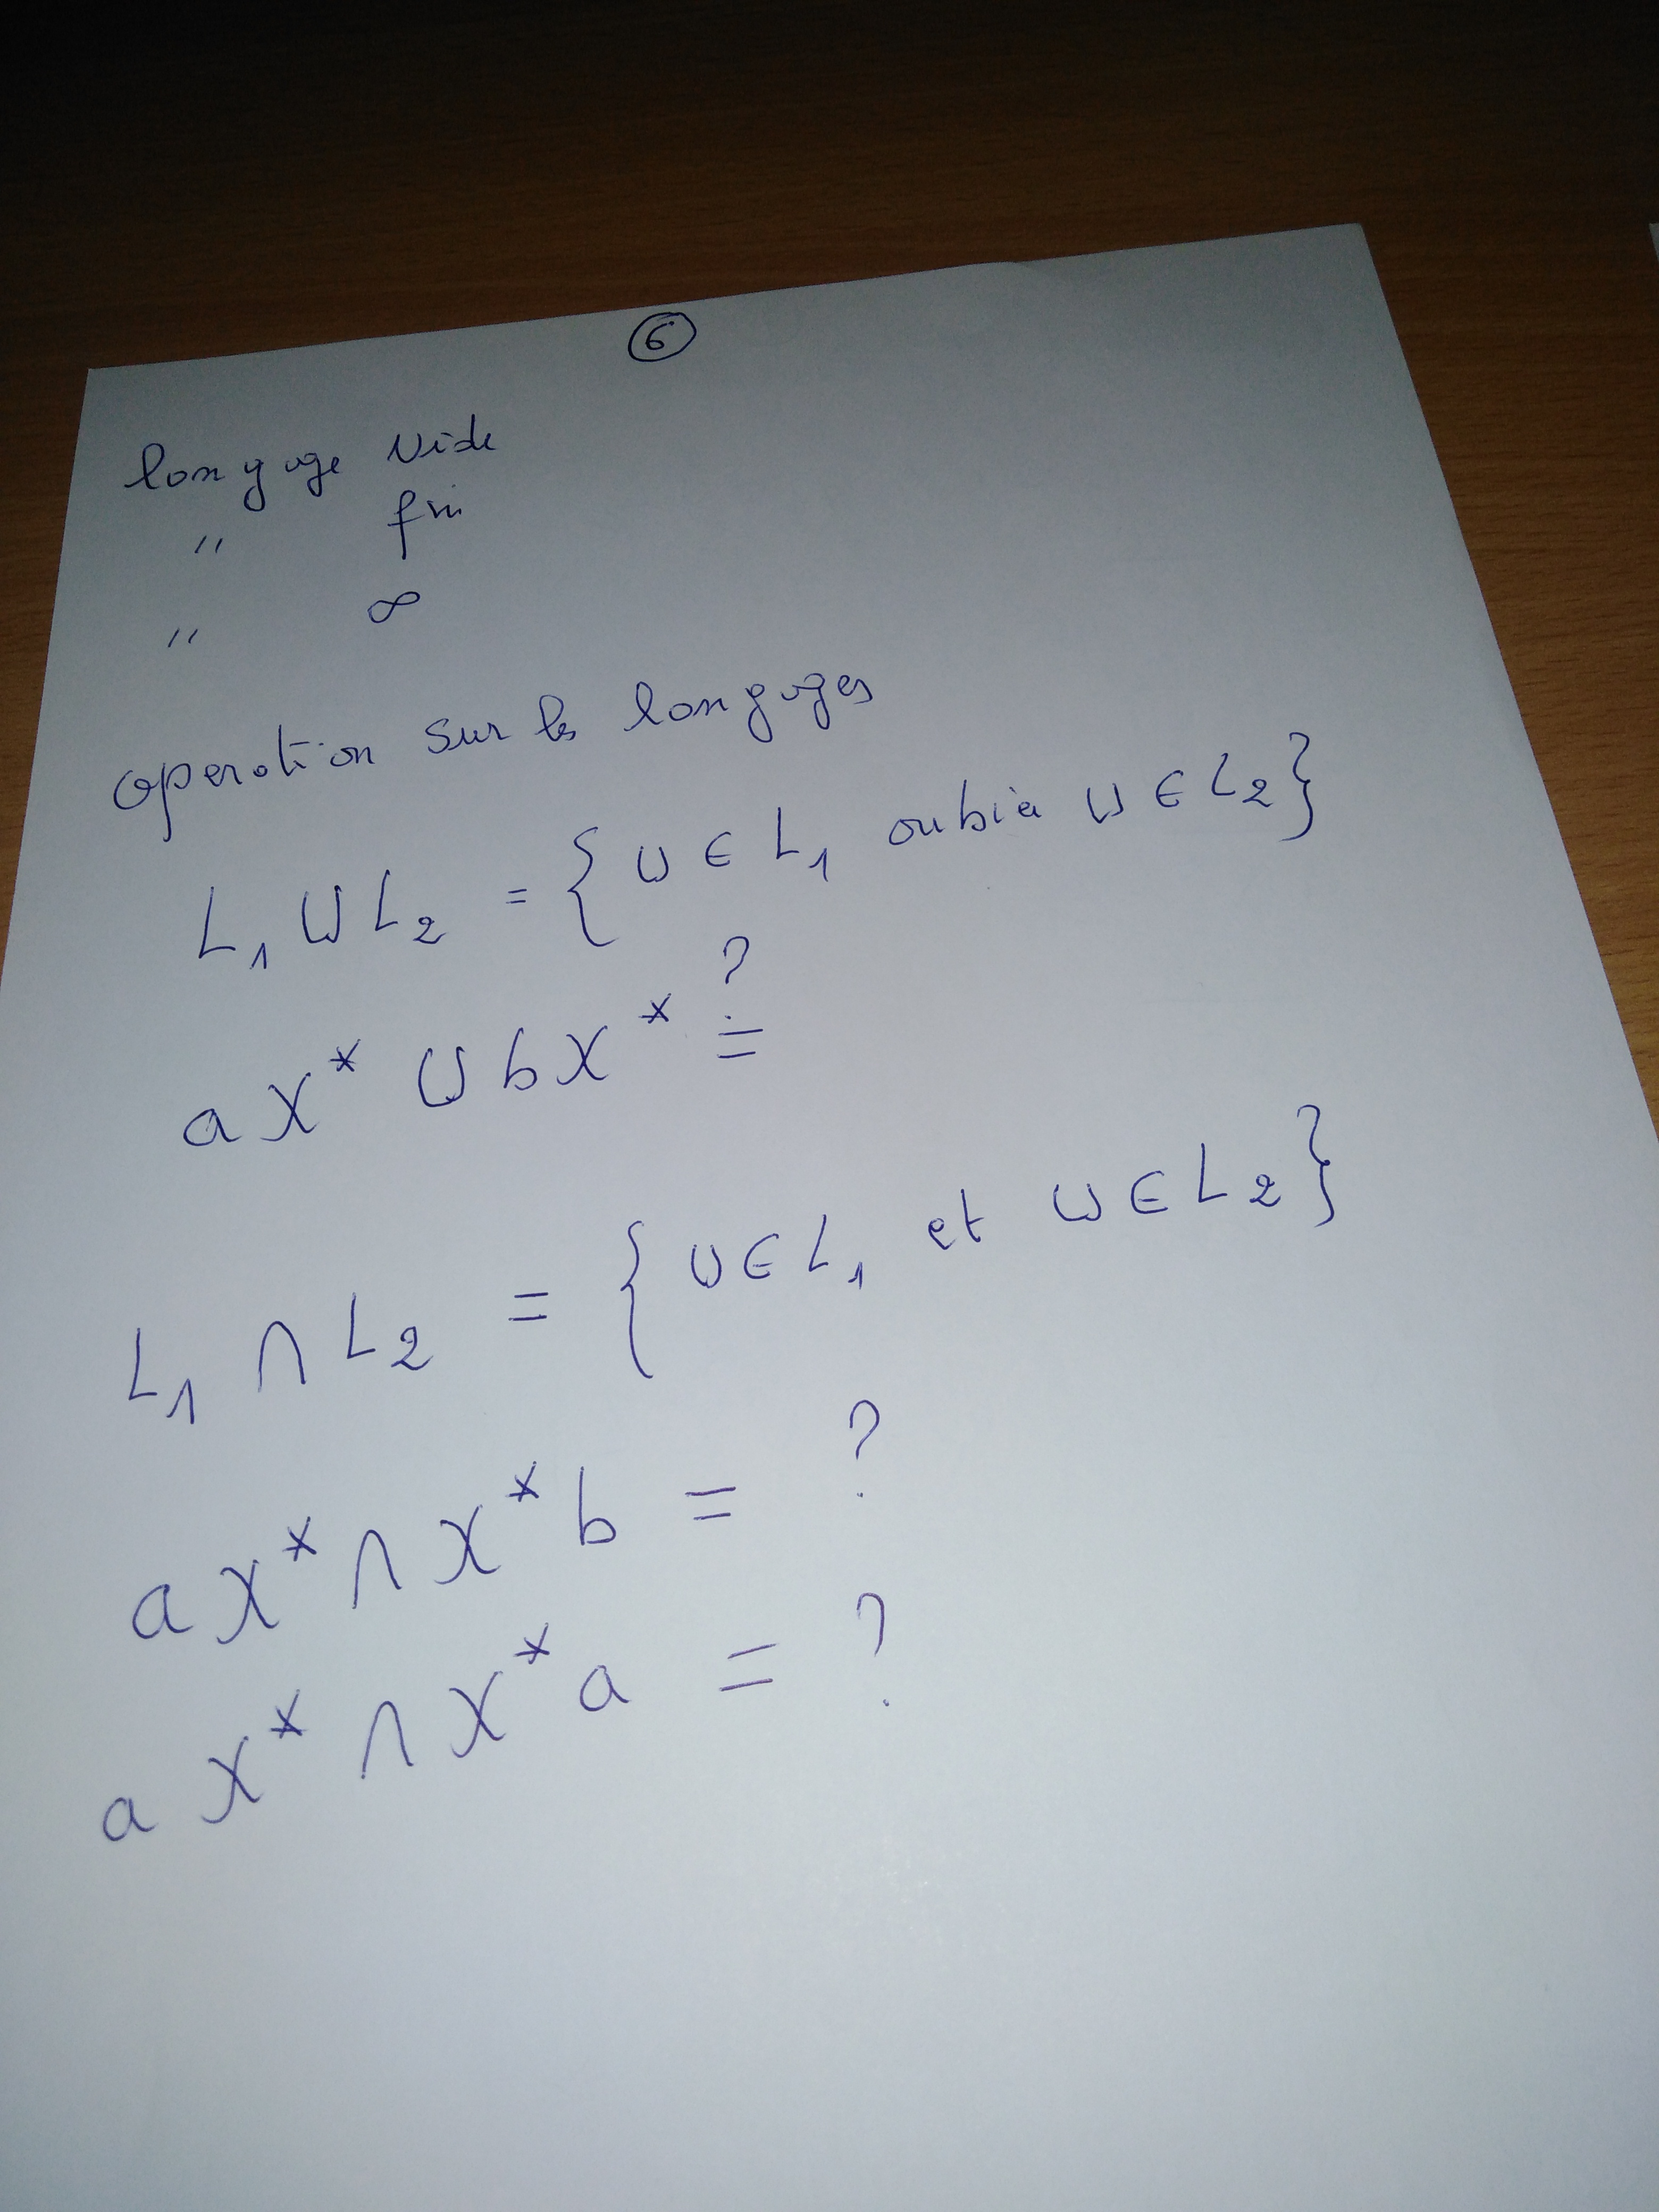 6
langage vide
" fini
" ∞
operation sur les langages
L₁ ∪ L₂ = { u ∈ L₁ oubien u ∈ L₂ }
a X* ∪ b X* ?=
L₁ ∩ L₂ = { u ∈ L₁ et u ∈ L₂ }
a X* ∩ X* b = ?
a X* ∩ X* a = ?